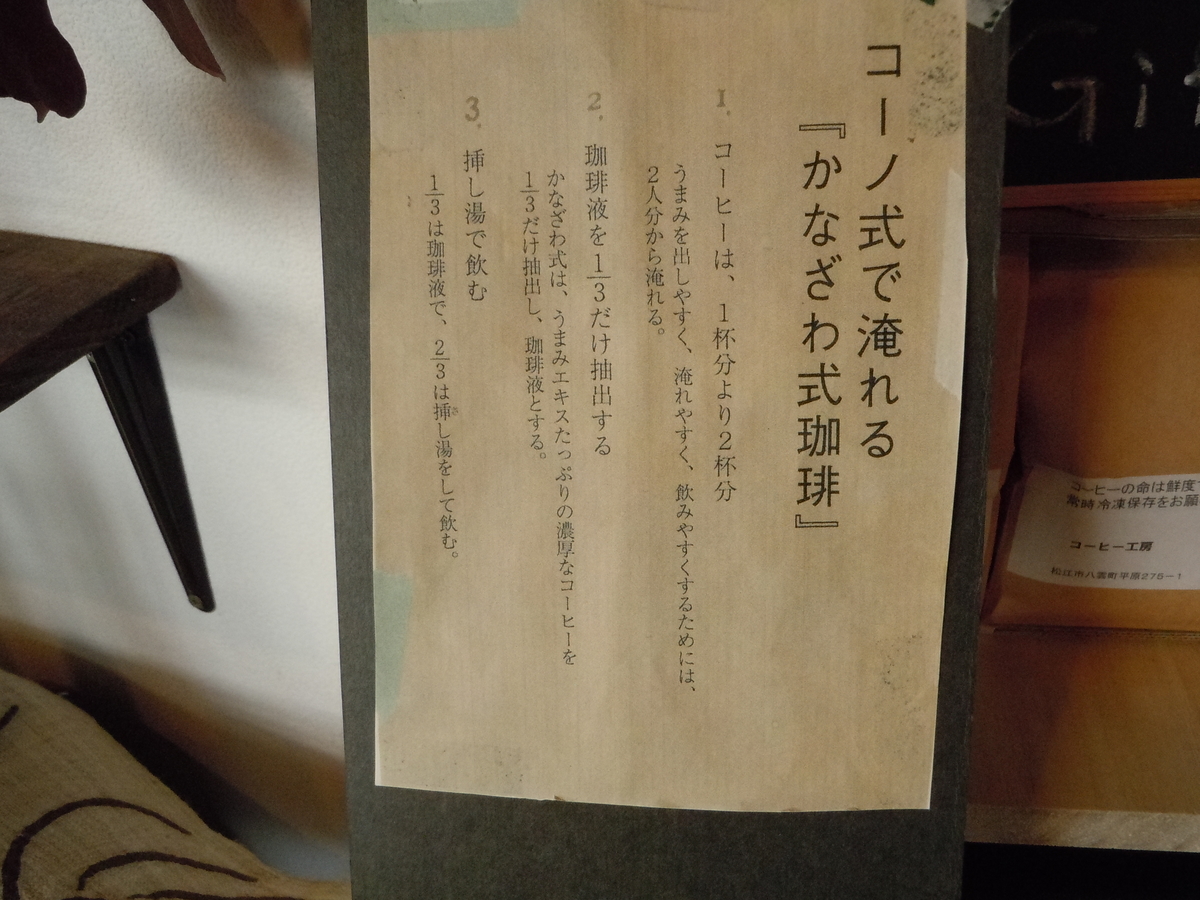 コーノ式で淹れる
『かなざわ式珈琲』
1. コーヒーは、1杯分より2杯分
うまみを出しやすく、淹れやすく、飲みやすくするためには、
2人分から淹れる。
2. 珈琲液を1/3だけ抽出する
かなざわ式は、うまみエキスたっぷりの濃厚なコーヒーを
1/3だけ抽出し、珈琲液とする。
3. 挿し湯で飲む
1/3は珈琲液で、2/3は挿し湯をして飲む。
Gif
コーヒーの命は鮮度
常時冷凍保存をお願
コーヒー工房
松江市八雲町平原275-1